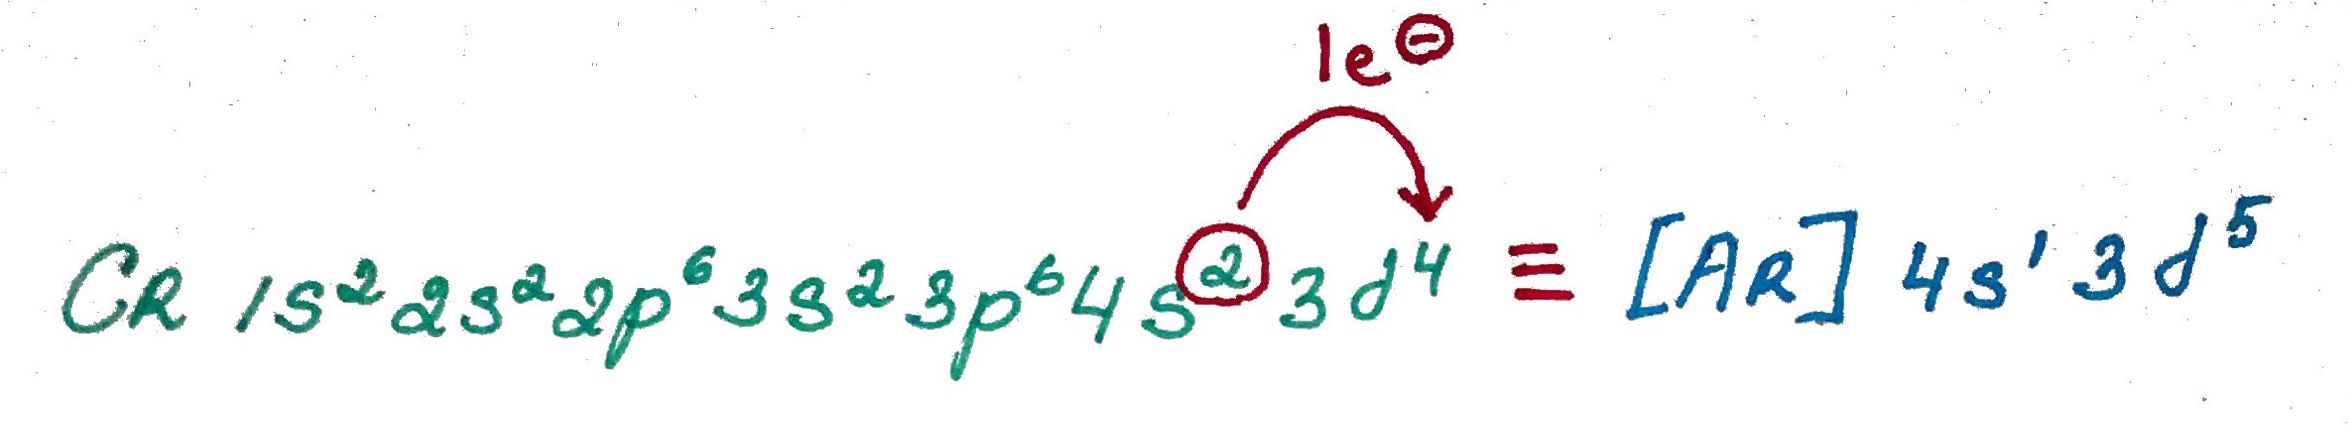 1e⊖
CR 1s² 2s² 2p⁶ 3s² 3p⁶ 4s² 3d⁴ ≡ [AR] 4s¹ 3d⁵